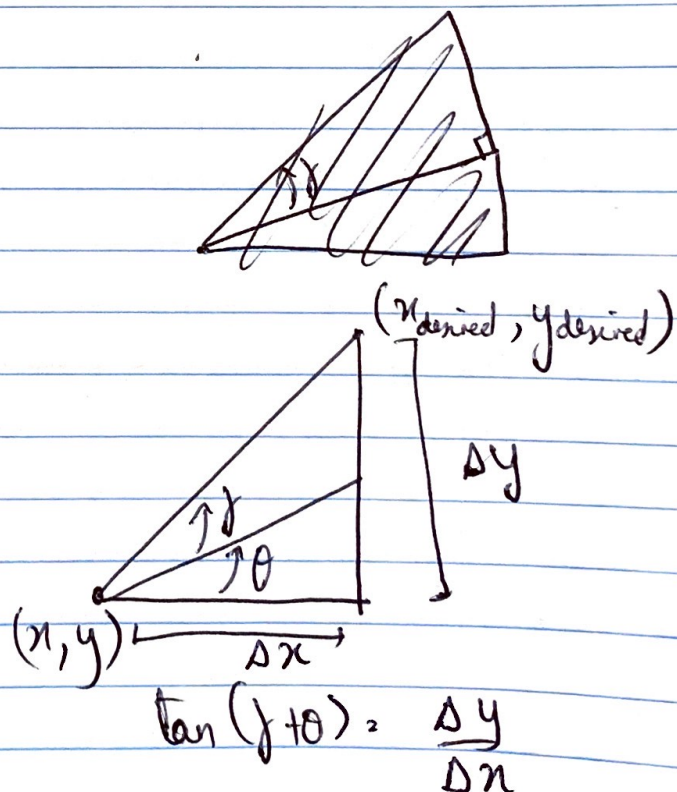 γ
(x_desired, y_desired)
Δy
γ
θ
(x, y)
Δx
tan(γ+θ) = Δy/Δx